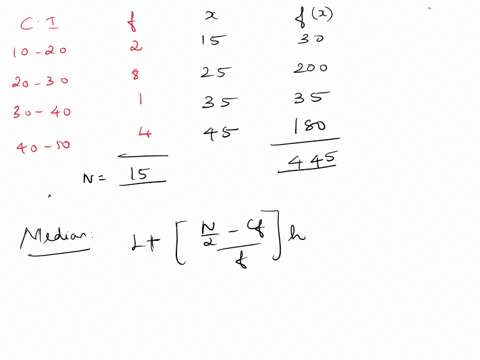 C.I f x f(x)
10-20 2 15 30
20-30 8 25 200
30-40 1 35 35
40-50 4 45 180
N = 15 445
Median: L+ [ N/2 - Cf / f ] h